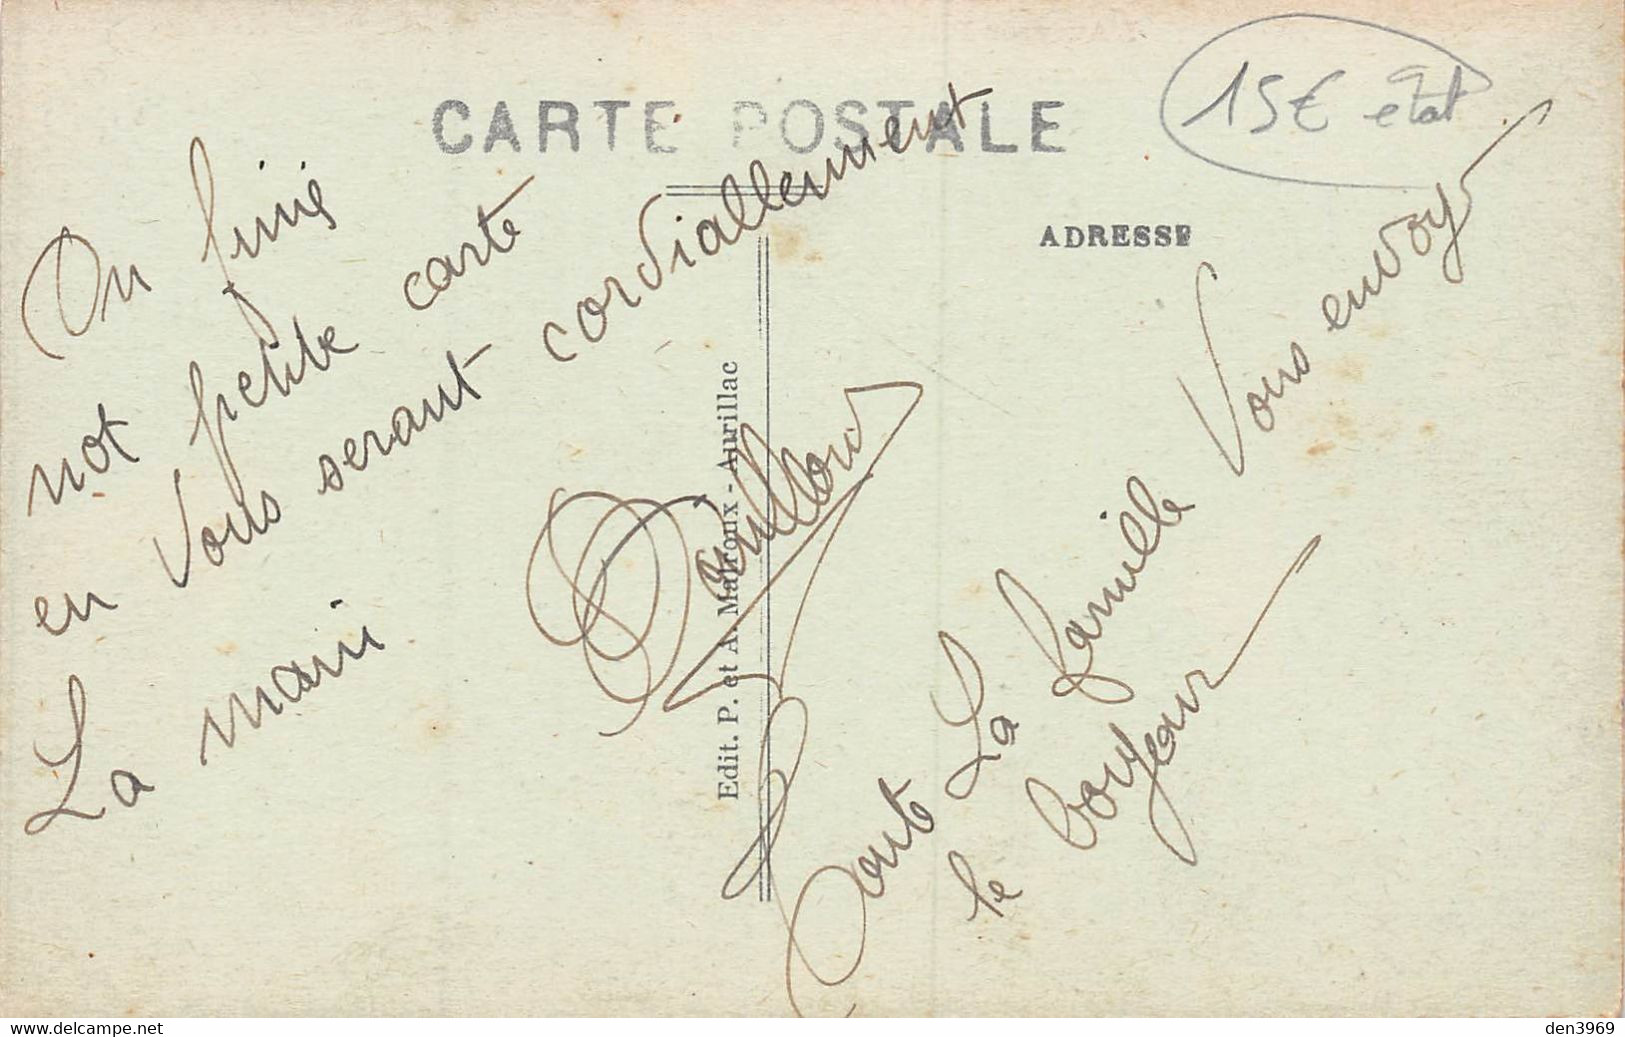 CARTE POSTALE
15€ état
ADRESSE
On finis
not petite carte
en Vous serant cordiallement
La main
Toute La famille Vous envoye
le bonjeour
Edit. P. et A. Malroux - Aurillac
www.delcampe.net
den3969